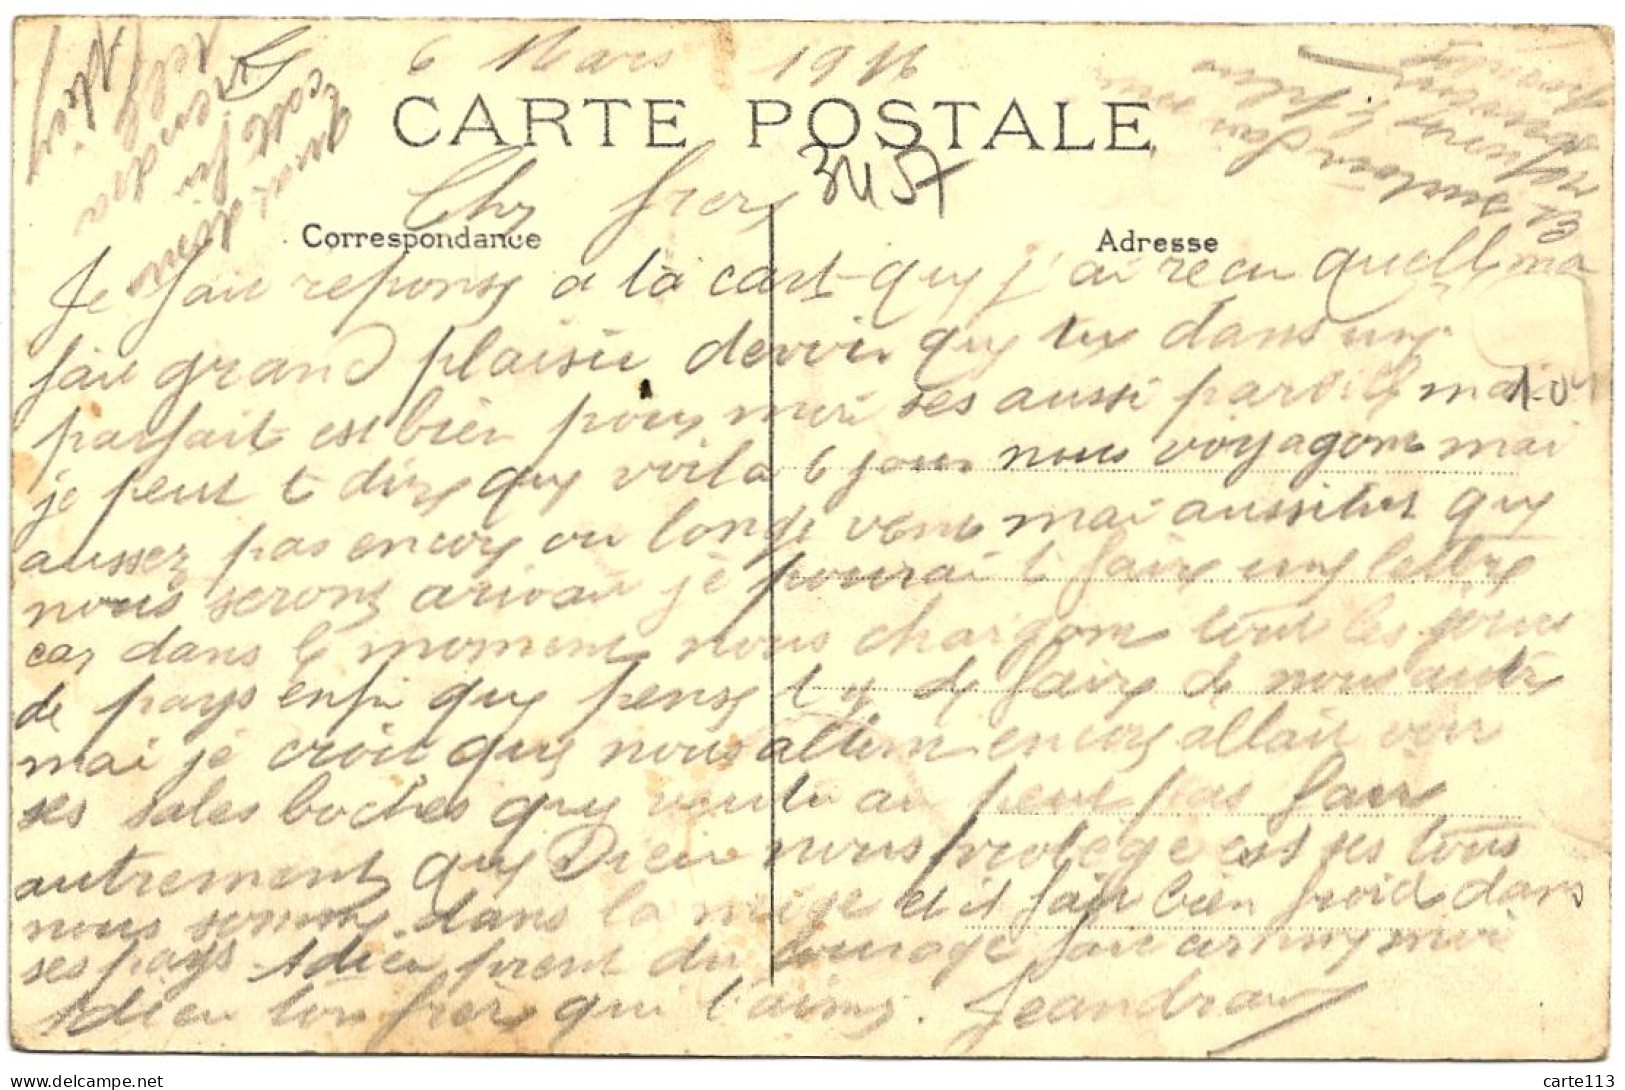 6 Mars 1916
CARTE POSTALE
3457
Cher frer
Correspondance
Adresse
Je fait reponse a la cart que j'ai recu quelle ma
fait grand plaisir de voir que tu dans une
parfait est bien pour moi ses aussi pareille mai
1.0
je peut t dire que voila 6 jour nous voyagom mai
aussez pas encore ou longe vene mai aussitot que
nous seronz arivai je pourai t faire une lettre
car dans le moment nous chargom tout les jours
de pays enfi que pense t y de faire de nous autre
mai je croit que nous allom encore allair voir
ses sales boches que veutu an peut pas faire
autrement que Dieu nous protege est ses tous
nous somme dans la neige et il fait bien froid dans
ses pays Adieu prent du courage fait comme moi
Adieu ton frere qui t'aime. Jeandrau